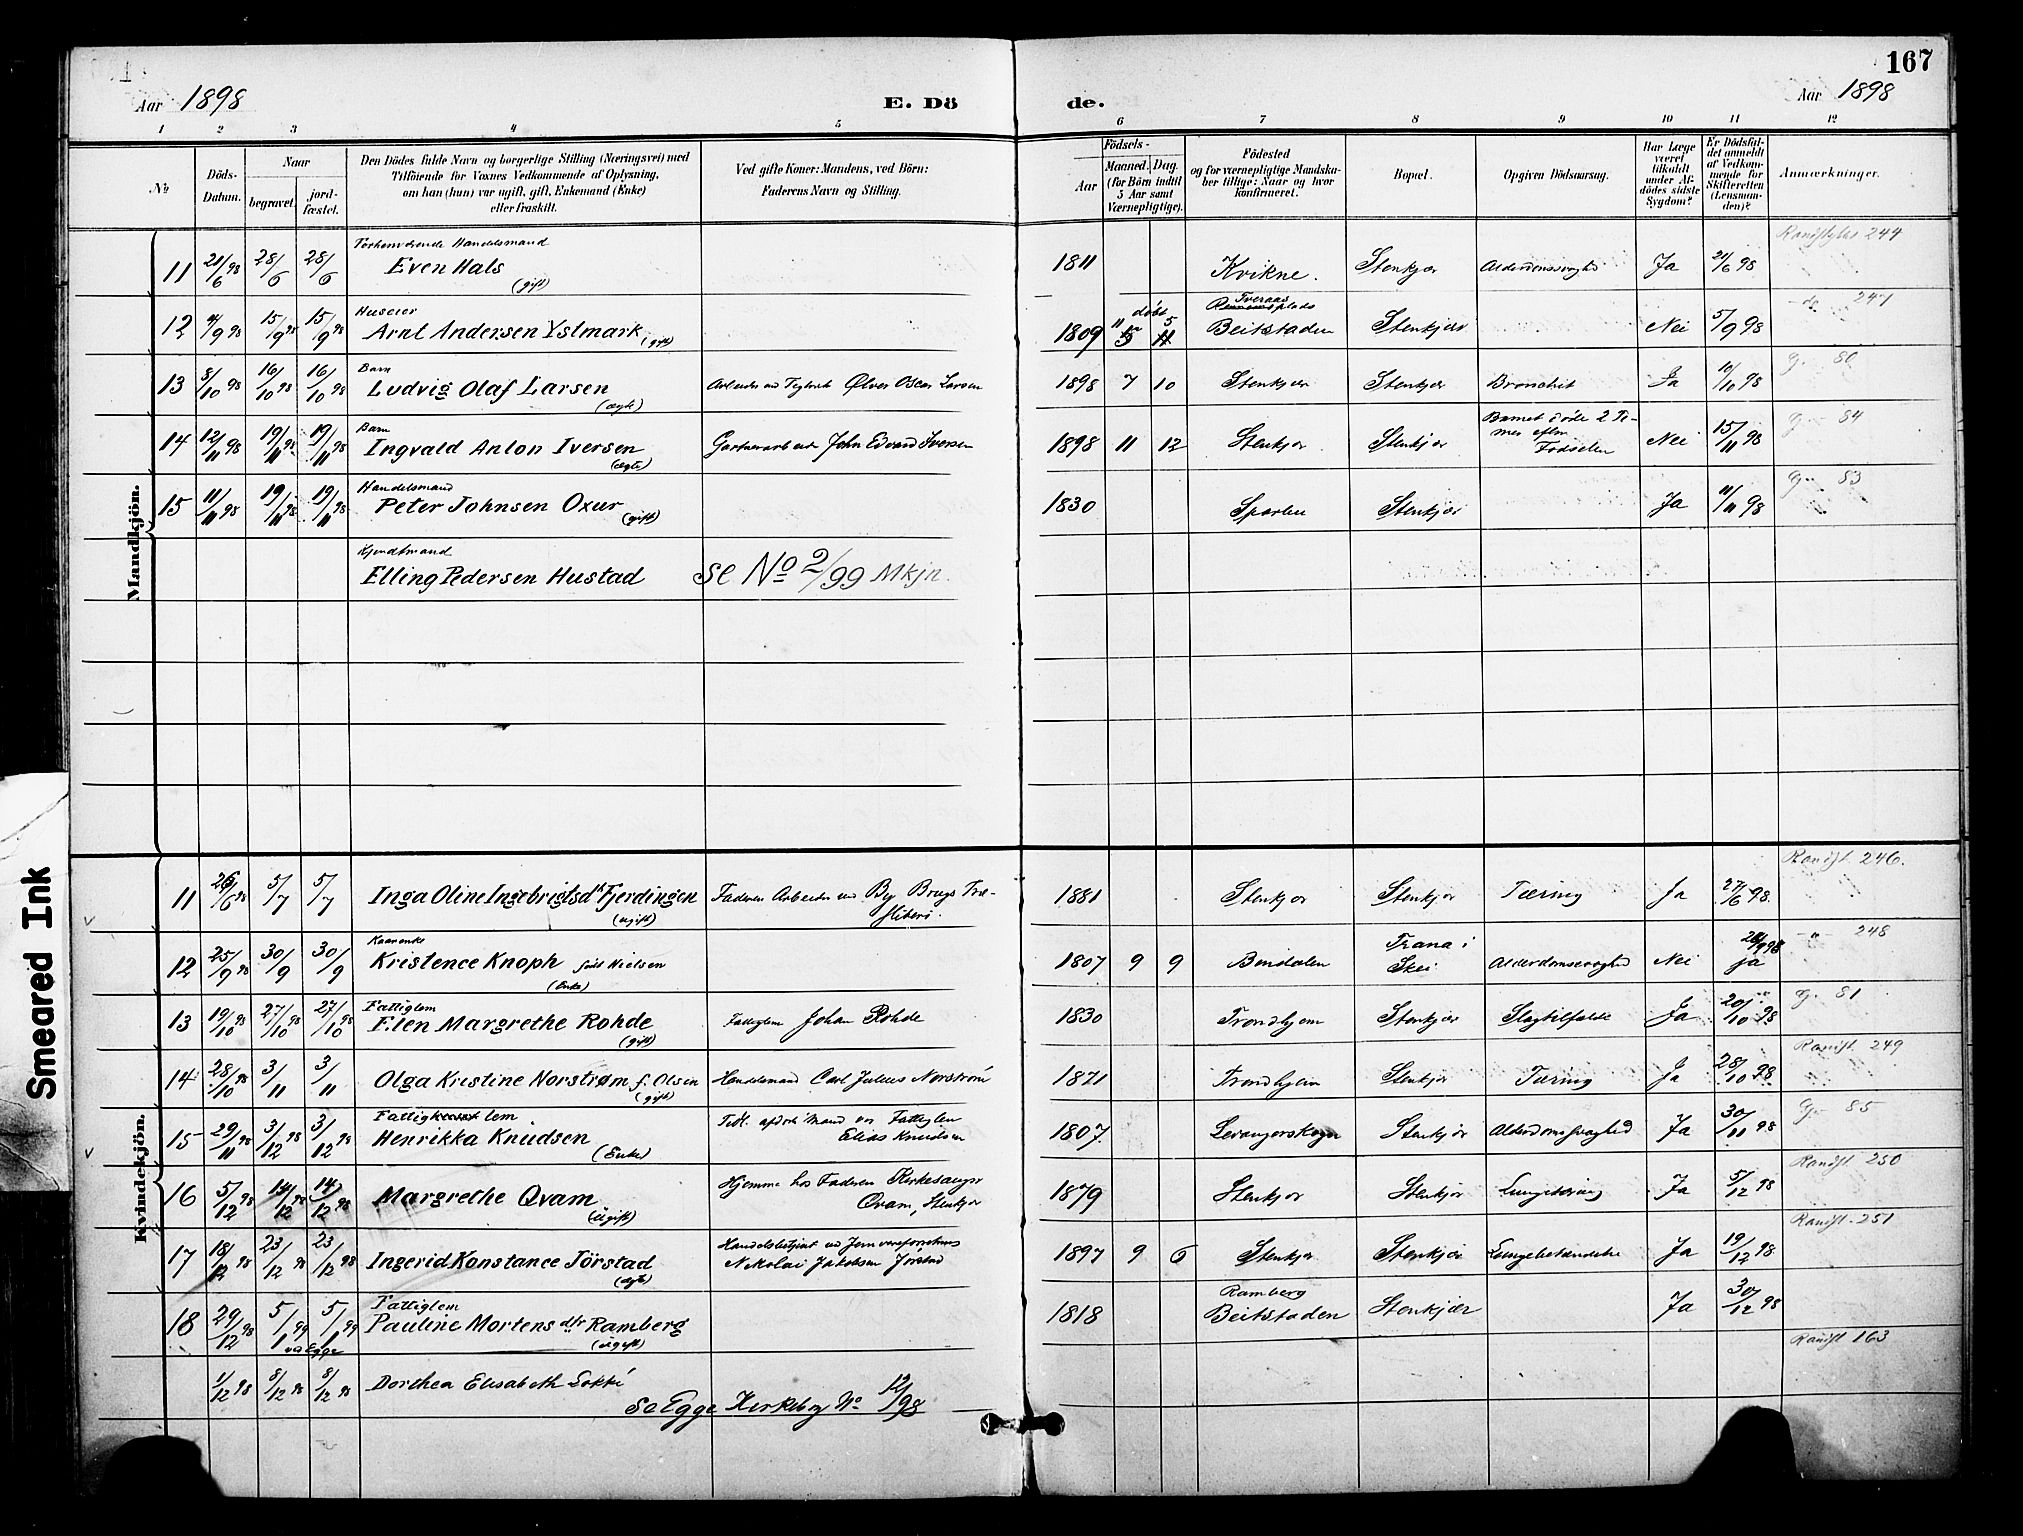 167
Aar 1898 E. Dö de. Aar 1898
1 2 3 4 5 6 7 8 9 10 11 12
No
Döds-Datum.
Naar
begravet.
jord-fæstet.
Den Dödes fulde Navn og borgerlige Stilling (Næringsvei) med
Tilföiende for Voxnes Vedkommende af Oplysning,
om han (hun) var ugift, gift, Enkemand (Enke)
eller fraskilt.
Ved gifte Koner: Mandens, ved Börn:
Faderens Navn og Stilling.
Födsels-
Aar
Maaned. Dag.
(for Börn indtil
5 Aar samt
Værnepligtige).
Födested
og for værnepligtige Mandska-
ber tillige: Naar og hvor
konfirmeret.
Bopæl.
Opgiven Dödsaarsag.
Har Læge
været
tilkaldt
under Af-
dödes sidste
Sygdom?
Er Dödsfal-
det anmeldt
af Vedkom-
mende for
Skifteretten
(Lensman-
den)?
Anmærkninger.
Mandkjön.
11 21/6 98 28/6 28/6 Forhenværende Handelsmand
Even Hals
(gift)
1811 Kvikne. Stenkjær Alderdomssvaghed Ja 21/6 98 244
12 4/9 98 15/9 98 15/9 98 Huseier
Arnt Andersen Ystmark (gift)
1809 døbt 11 5 Tveraas plads
Beitstaden Stenkjær Nei 5/9 98 do 247
13 8/10 98 16/10 98 16/10 98 Barn
Ludvig Olaf Larsen
(ægte)
Arbeider ved Teglverk Ølver Oscar Larsen 1898 7 10 Stenkjær Stenkjær Bronchit Ja 10/10 98 G. 80
14 12/11 98 19/11 98 19/11 98 Barn
Ingvald Anton Iversen
(ægte)
Garverarbeider John Edvard Iversen 1898 11 12 Stenkjær Stenkjær Barnet døde 2 Ti-
mer efter
Fødselen Nei 15/11 98 G. 84
15 11/11 98 19/11 98 19/11 98 Handelsmand
Peter Johnsen Oxur
(gift)
1830 Sparbu Stenkjær Ja 11/11 98 G. 83
Kjendtmand
Elling Pedersen Hustad se No 2/99 Mkjn.
Kvindekjön.
11 26/6 98 5/7 5/7 Inga Oline Ingebrigtsdtr Fjerdingen
(ugift)
Faderen Arbeider ved By Brugs Træ-
sliberi. 1881 Stenkjær Stenkjær Tæring Ja 27/6 98. Randst. 246.
12 25/9 98 30/9 30/9 Kaarenke
Kristence Knoph født Nielsen
(Enke)
1807 9 9 Bindalen Trana i
Skei Alderdomssvaghed Nei 26/9 98
ja - " - 248
13 19/10 98 27/10 98 27/10 98 Fattiglem
Elen Margrethe Rohde
(gift)
Fattiglem Johan Rohde 1830 Trondhjem Stenkjær Slagtilfælde Ja 20/10 98 G. 81
14 28/10 98 3/11 3/11 Olga Kristine Norstrøm f. Olsen
(gift)
Handelsmand Carl Julius Norstrøm 1871 Trondhjem Stenkjær Tæring Ja 28/10 98 Randst. 249
15 29/11 98 3/12 98 3/12 98 Fattiglem
Henrikka Knudsen
(Enke)
Tidl. afdøde Mand var Fattiglem
Elias Knudsen 1807. Levangerskogn Stenkjær Alderdomssvaghed Ja 30/11 98 G. 85
16 5/12 98 14/12 98 14/12 98 Margrethe Qvam
(Ugift)
Hjemme hos Faderen Kirkesanger
Qvam, Stenkjær 1879 Stenkjær Stenkjær Lungetæring Ja 5/12 98 Randst. 250
17 18/12 98 23/12 98 23/12 98 Ingerid Konstance Jörstad
(ægte)
Handelsbetjent ved Jernvareforretning
Nikolai Jakobsen Jørstad 1897 9 6 Stenkjær Stenkjær Lungebetændelse Ja 19/12 98 Randst. 251
18 29/12 98 5/1 99 5/1 99 Fattiglem
Pauline Mortens dtr Ramberg
(ugift)
1818 Ramberg
Beitstaden Stenkjær Ja 30/12 98
ved Egge
1/12 98 8/12 98 8/12 98 Dorthea Elisabeth Lökke Randst 163
Se Egge Kirkebog No 12/98
Smeared Ink